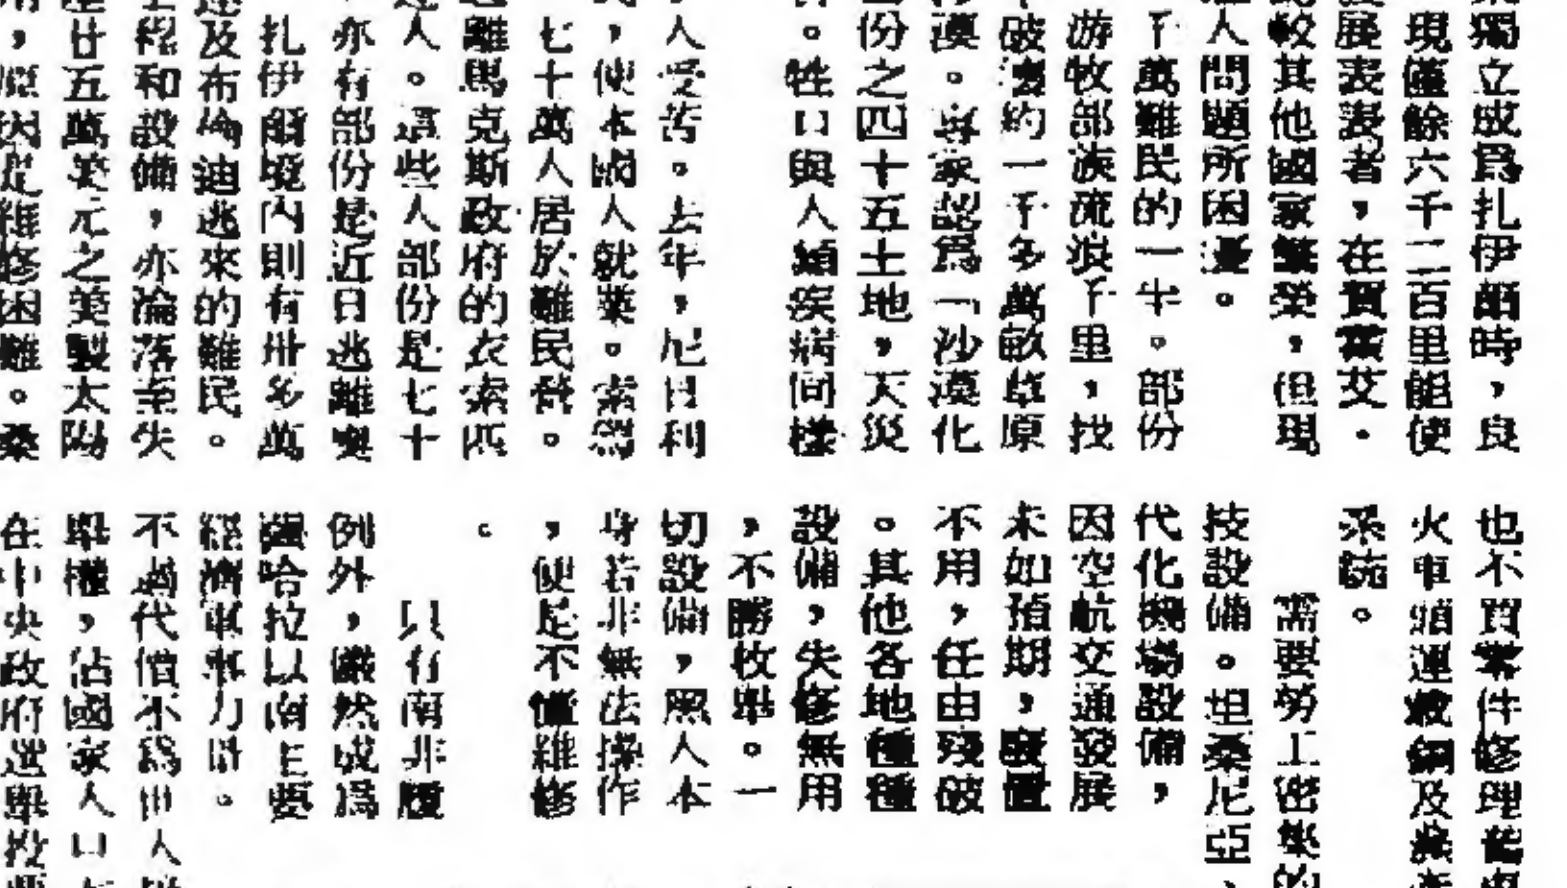 獨立成爲扎伊爾時，良
現僅餘六千二百里能使
展表表者，在賈蓋艾・
較其他國家繁榮，但現
人問題所困擾。
千萬難民的一半。部份
游牧部族流浪千里，找
破壞約一千多萬畝草原
漠。專家認爲「沙漠化
份之四十五土地，天災
。牲口與人類疾病同樣
人受苦。去年，尼日利
，使本國人就業。索馬
七十萬人居於難民營。
離馬克斯政府的衣索匹
人。這些人部份是七十
亦有部份是近日逃離奧
扎伊爾境內則有卅多萬
及布倫迪逃來的難民。
程和設備，亦淪落至失
廿五萬美元之美製太陽
，原因是維修困難。桑
也不買零件修理舊
火車頭運載銅及農產
系統。
需要勞工密集的
技設備。坦桑尼亞、
代化機場設備，
因空航交通發展
未如預期，廢置
不用，任由殘破
。其他各地種種
設備，失修無用
，不勝枚舉。一
切設備，照人本
身若非無法操作
，便是不懂維修
。
只有南非屬
例外，儼然成爲
薩哈拉以南主要
經濟軍事力量。
不過代價不爲世人
舉權，佔國家人口
在中央政府選舉投票